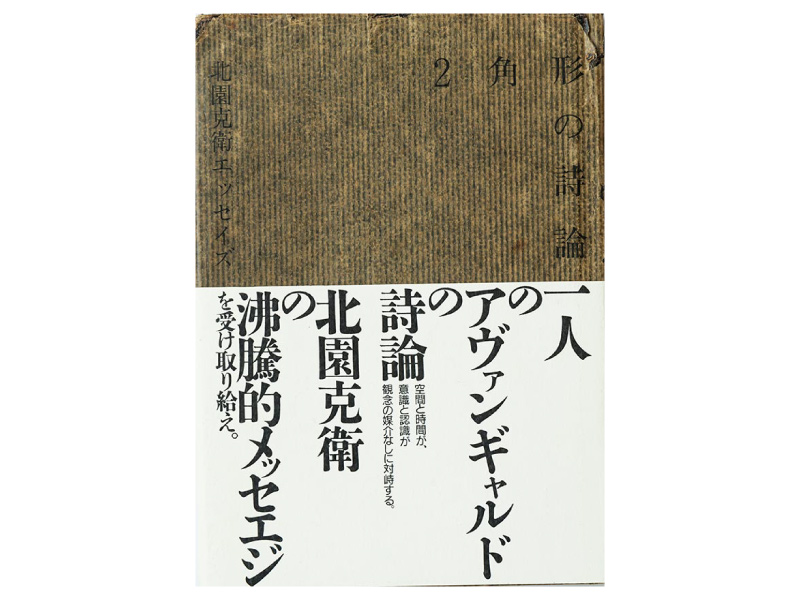 2角形の詩論
北園克衛エッセイズ
一人
の
アヴァンギャルド
の
詩論
空間と時間が、
意識と認識が
観念の媒介なしに対峙する。
北園克衛
の
沸騰的メッセエジ
を受け取り給え。